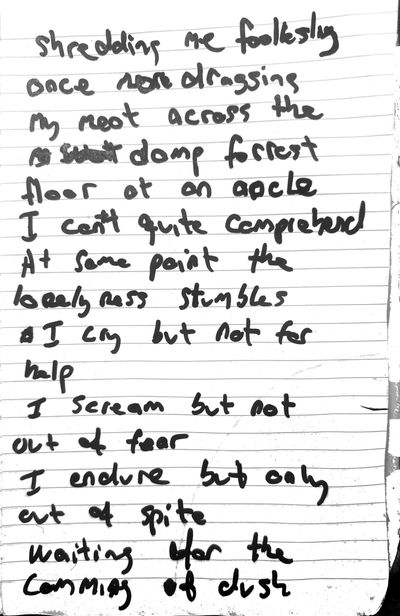 shredding me foolkeshly
once more dragging
my meat across the
damp forrest
floor at an angle
I can't quite comprehend
At some point the
lonelyness stumbles
I cry but not for
help
I scream but not
out of fear
I endure but only
out of spite
waiting for the
comming of dusk